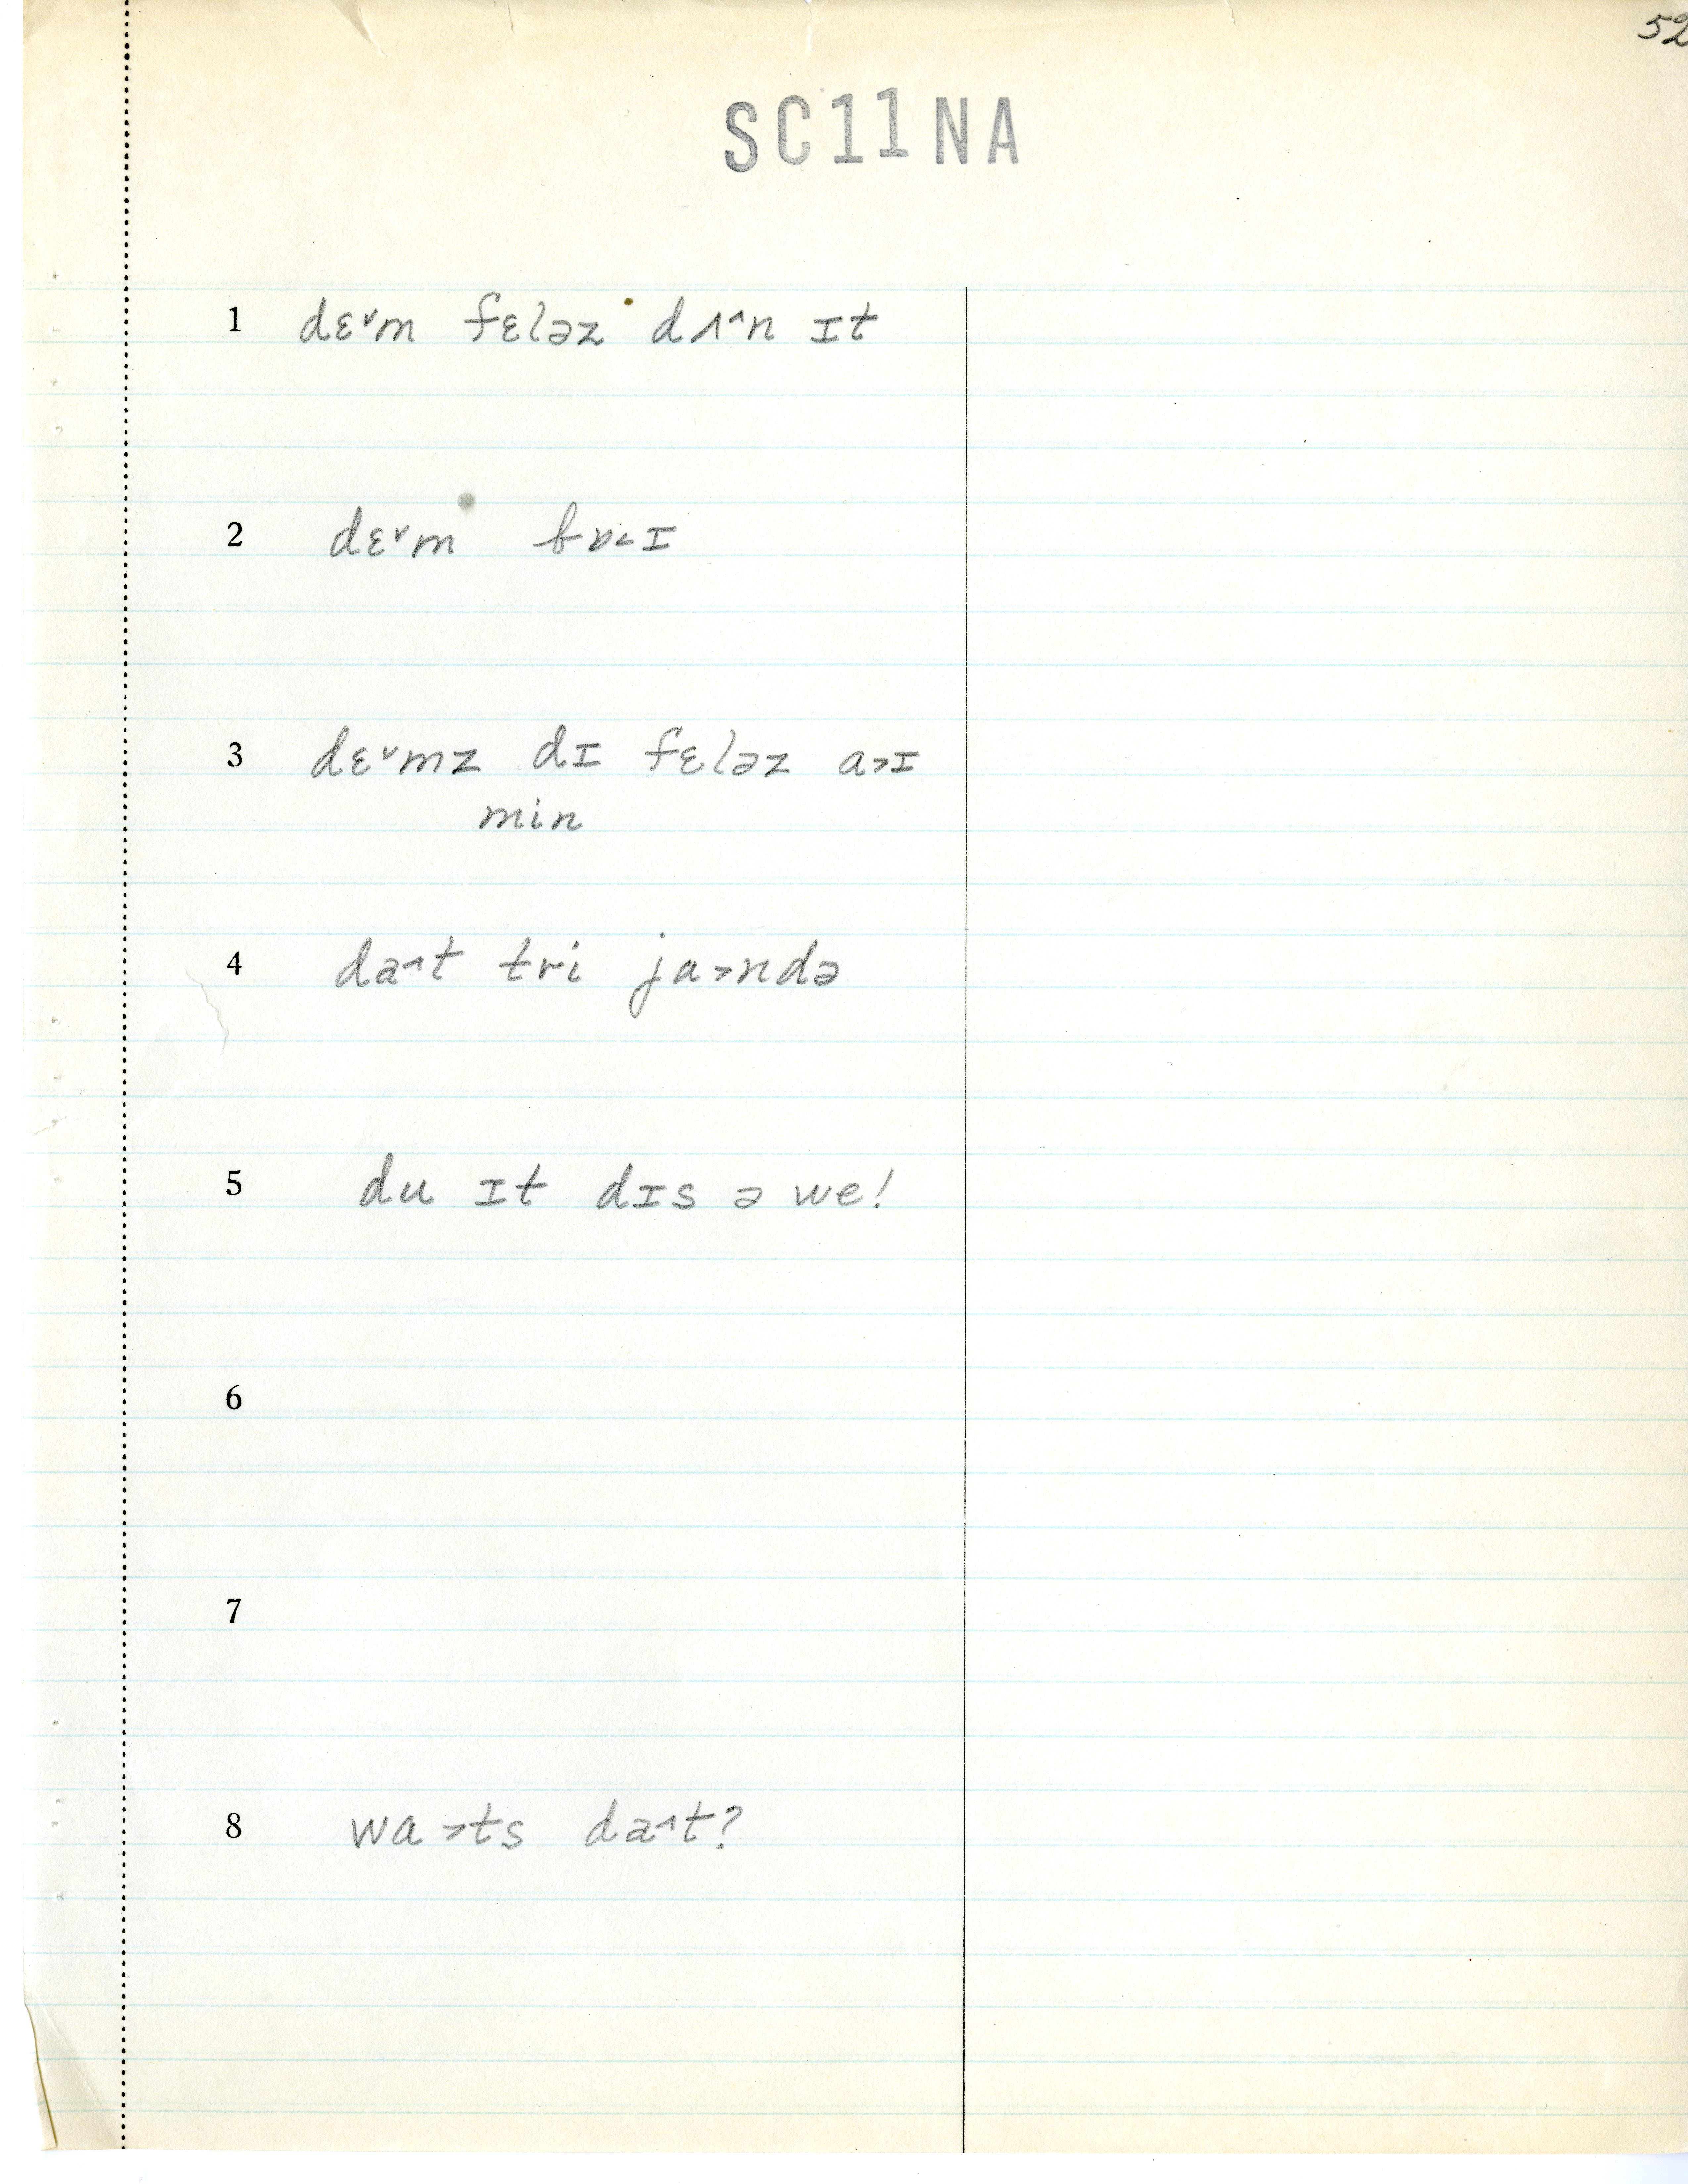 52
SC11NA
1 dɛ˅m fɛləz dʌ^n ɪt
2 dɛ˅m bɒ˂ɪ
3 dɛ˅mz dɪ fɛləz a˃ɪ
min
4 da^t tri ja˃ndə
5 du ɪt dɪs ə we!
6
7
8 wɑ˃ts da^t?